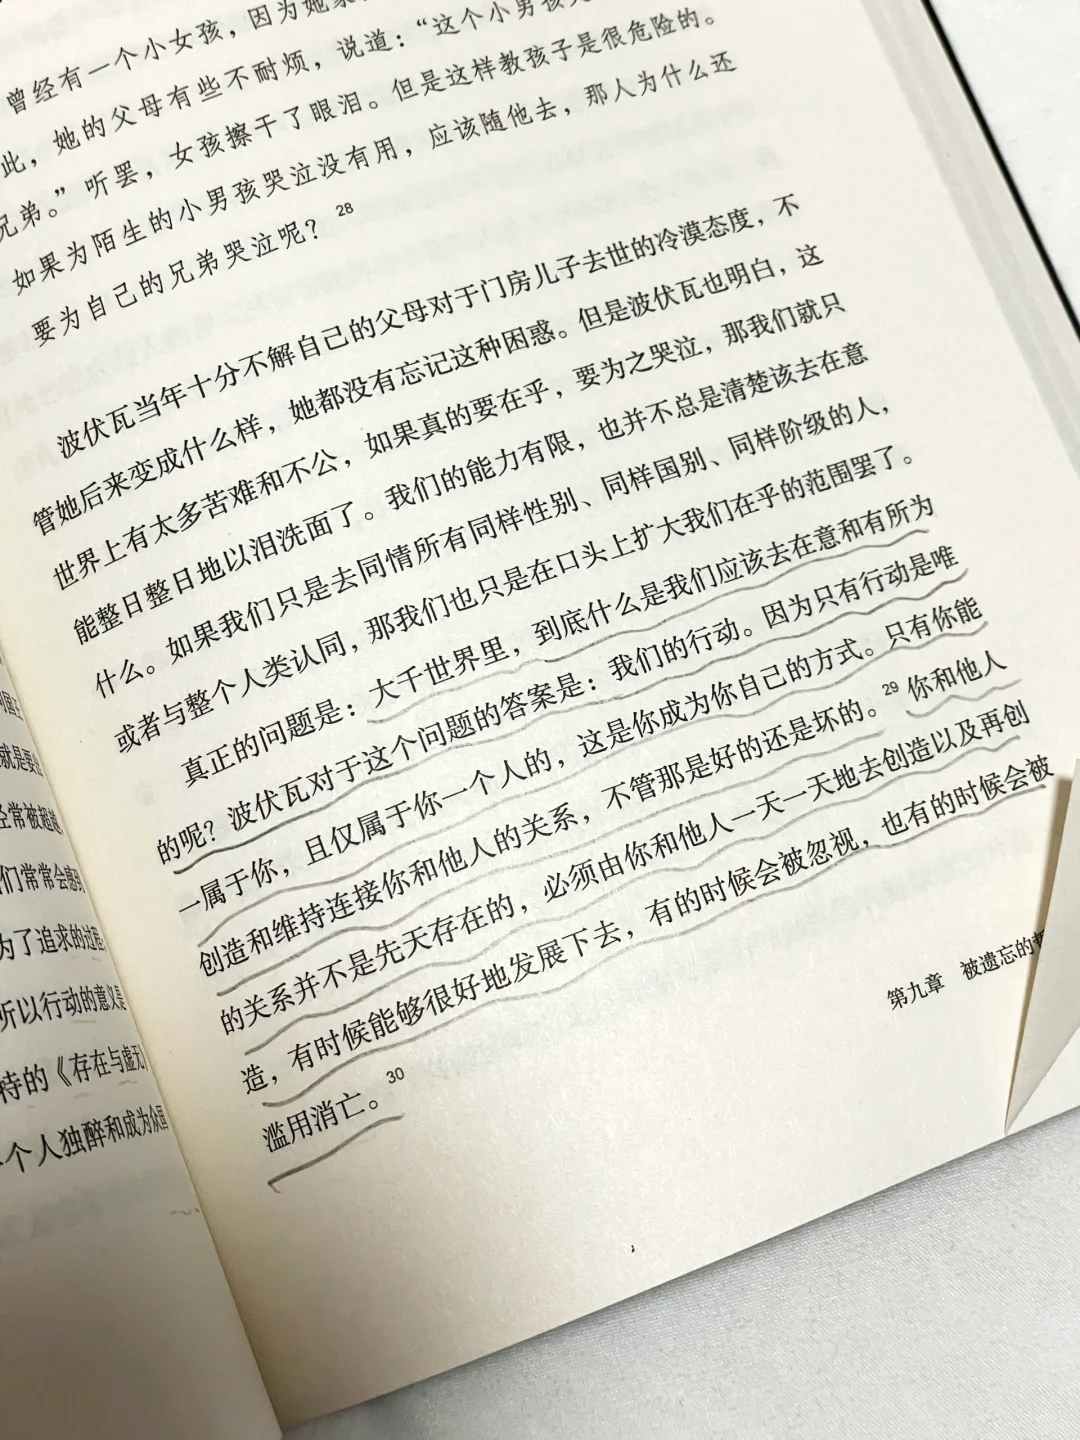 曾经有一个小女孩，因为她家
此，她的父母有些不耐烦，说道：“这个小男孩
兄弟。”听罢，女孩擦干了眼泪。但是这样教孩子是很危险的。
如果为陌生的小男孩哭泣没有用，应该随他去，那人为什么还
要为自己的兄弟哭泣呢？28
波伏瓦当年十分不解自己的父母对于门房儿子去世的冷漠态度，不
管她后来变成什么样，她都没有忘记这种困惑。但是波伏瓦也明白，这
世界上有太多苦难和不公，如果真的要在乎，要为之哭泣，那我们就只
能整日整日地以泪洗面了。我们的能力有限，也并不总是清楚该去在意
什么。如果我们只是去同情所有同样性别、同样国别、同样阶级的人，
或者与整个人类认同，那我们也只是在口头上扩大我们在乎的范围罢了。
真正的问题是：大千世界里，到底什么是我们应该去在意和有所为
的呢？波伏瓦对于这个问题的答案是：我们的行动。因为只有行动是唯
一属于你，且仅属于你一个人的，这是你成为你自己的方式。只有你能
创造和维持连接你和他人的关系，不管那是好的还是坏的。29 你和他人
的关系并不是先天存在的，必须由你和他人一天一天地去创造以及再创
造，有时候能够很好地发展下去，有的时候会被忽视，也有的时候会被
滥用消亡。30
第九章 被遗忘的
就是要
经常被超越
们常常会感到
为了追求的过程
所以行动的意义是
特的《存在与虚无》
个人独醉和成为众